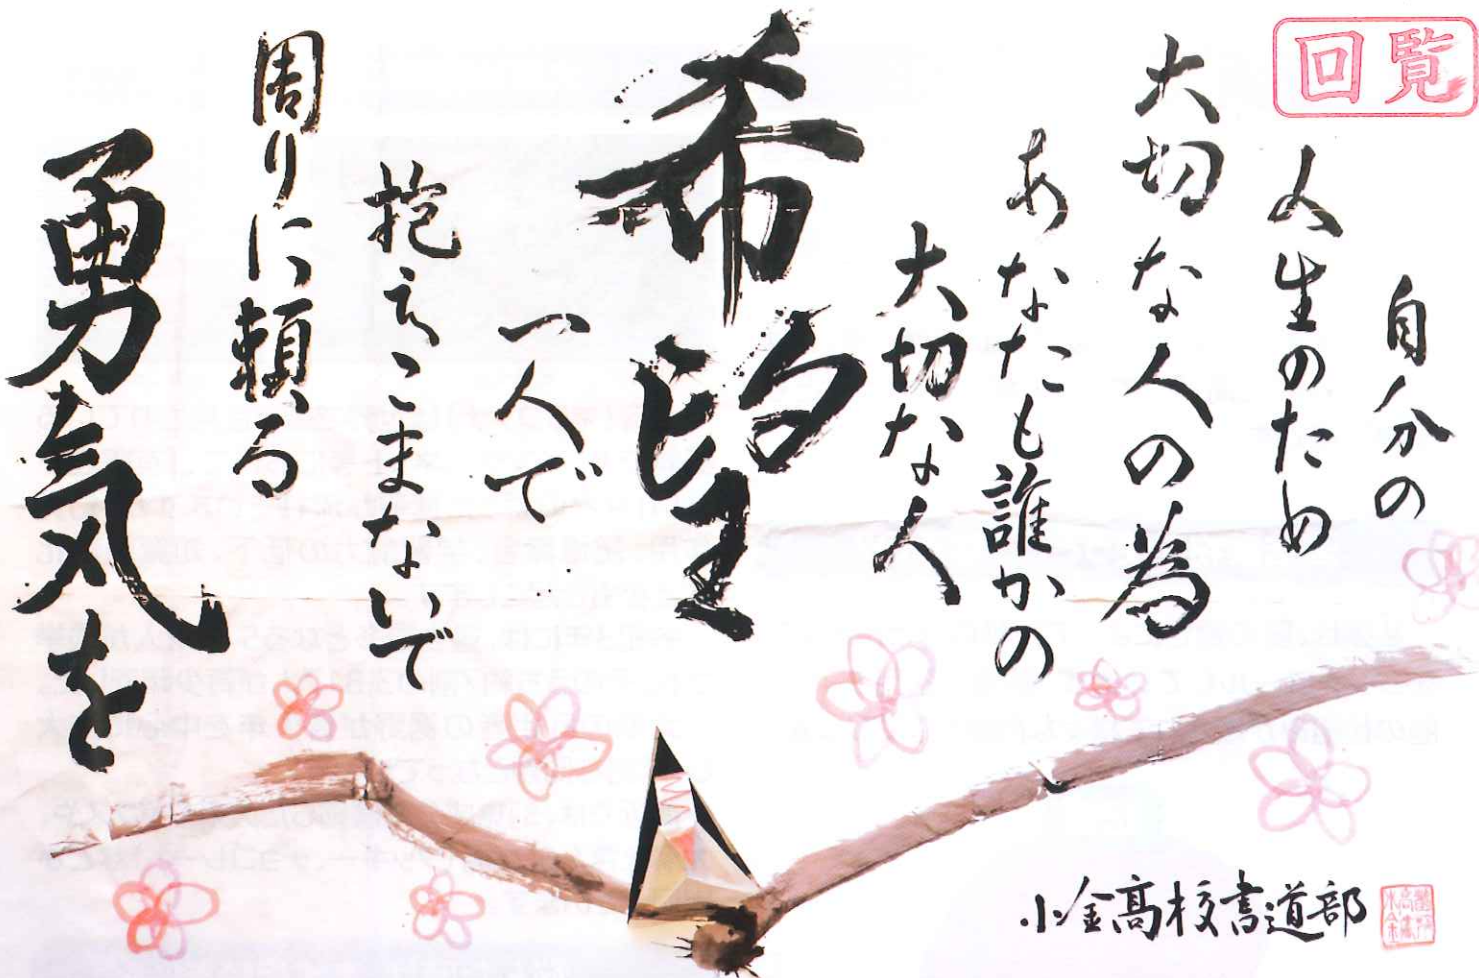 回覧
自分の
人生のため
大切な人の為
あなたも誰かの
大切な人
希望
一人で
抱えこまないで
周りに頼る
勇気を
小金高校書道部